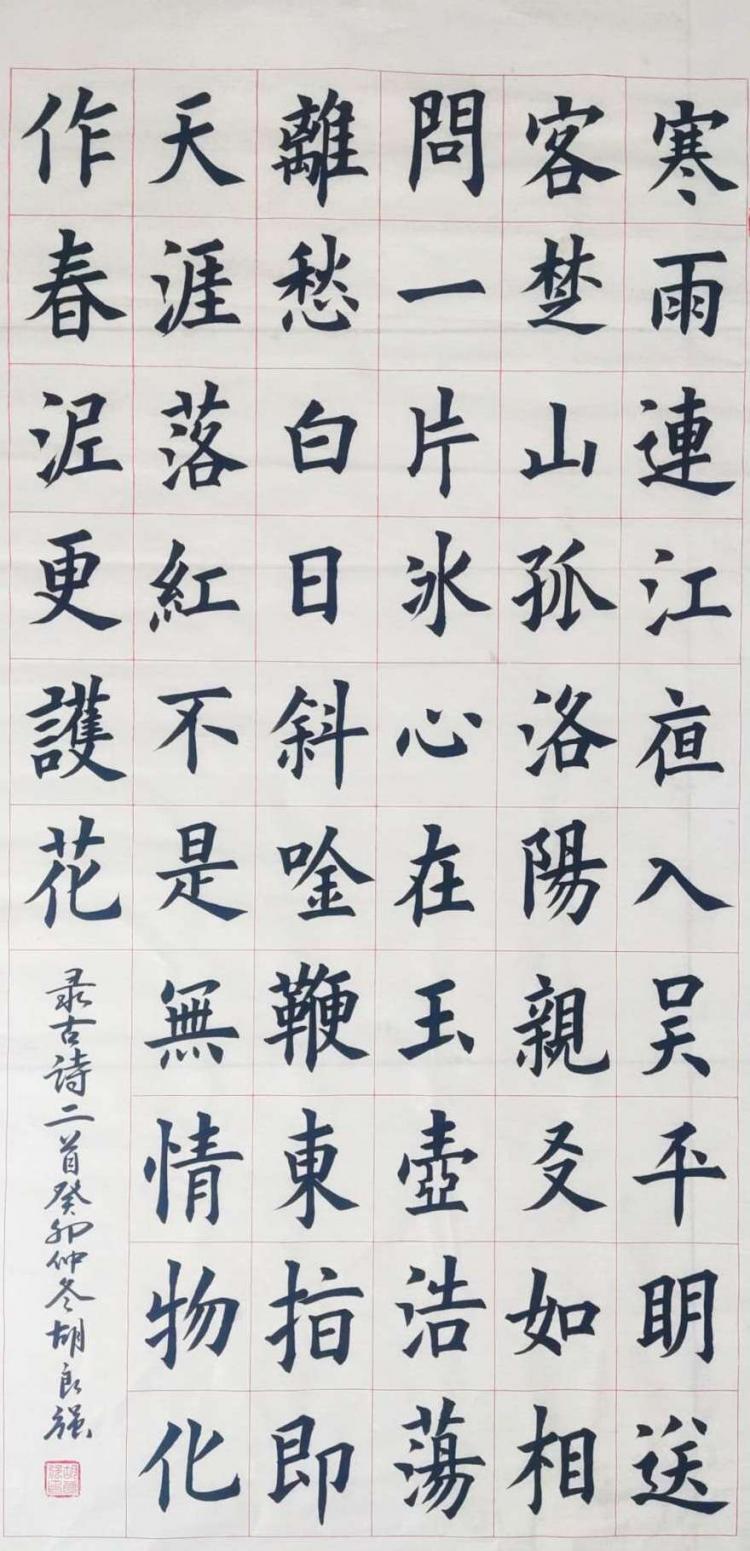 寒雨連江夜入吴平明送
客楚山孤洛陽親友如相
問一片冰心在玉壺浩蕩
離愁白日斜唫鞭東指即
天涯落紅不是無情物化
作春泥更護花
录古詩二首癸卯仲冬胡良強